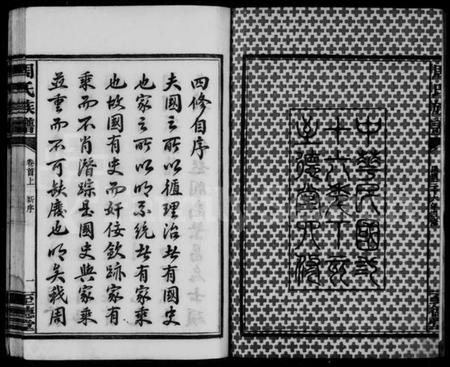 中華民國弎
十六秊丁亥
至德堂四修
四修自序
夫國之所以循理治者有國史
也家之所以明系統者有家乘
也故國有史而奸佞歛跡家有
乘而不肖潛踪是國史與家乘
並重而不可缺廢也明矣我周
周氏族譜
卷首上
新序
一
至德堂